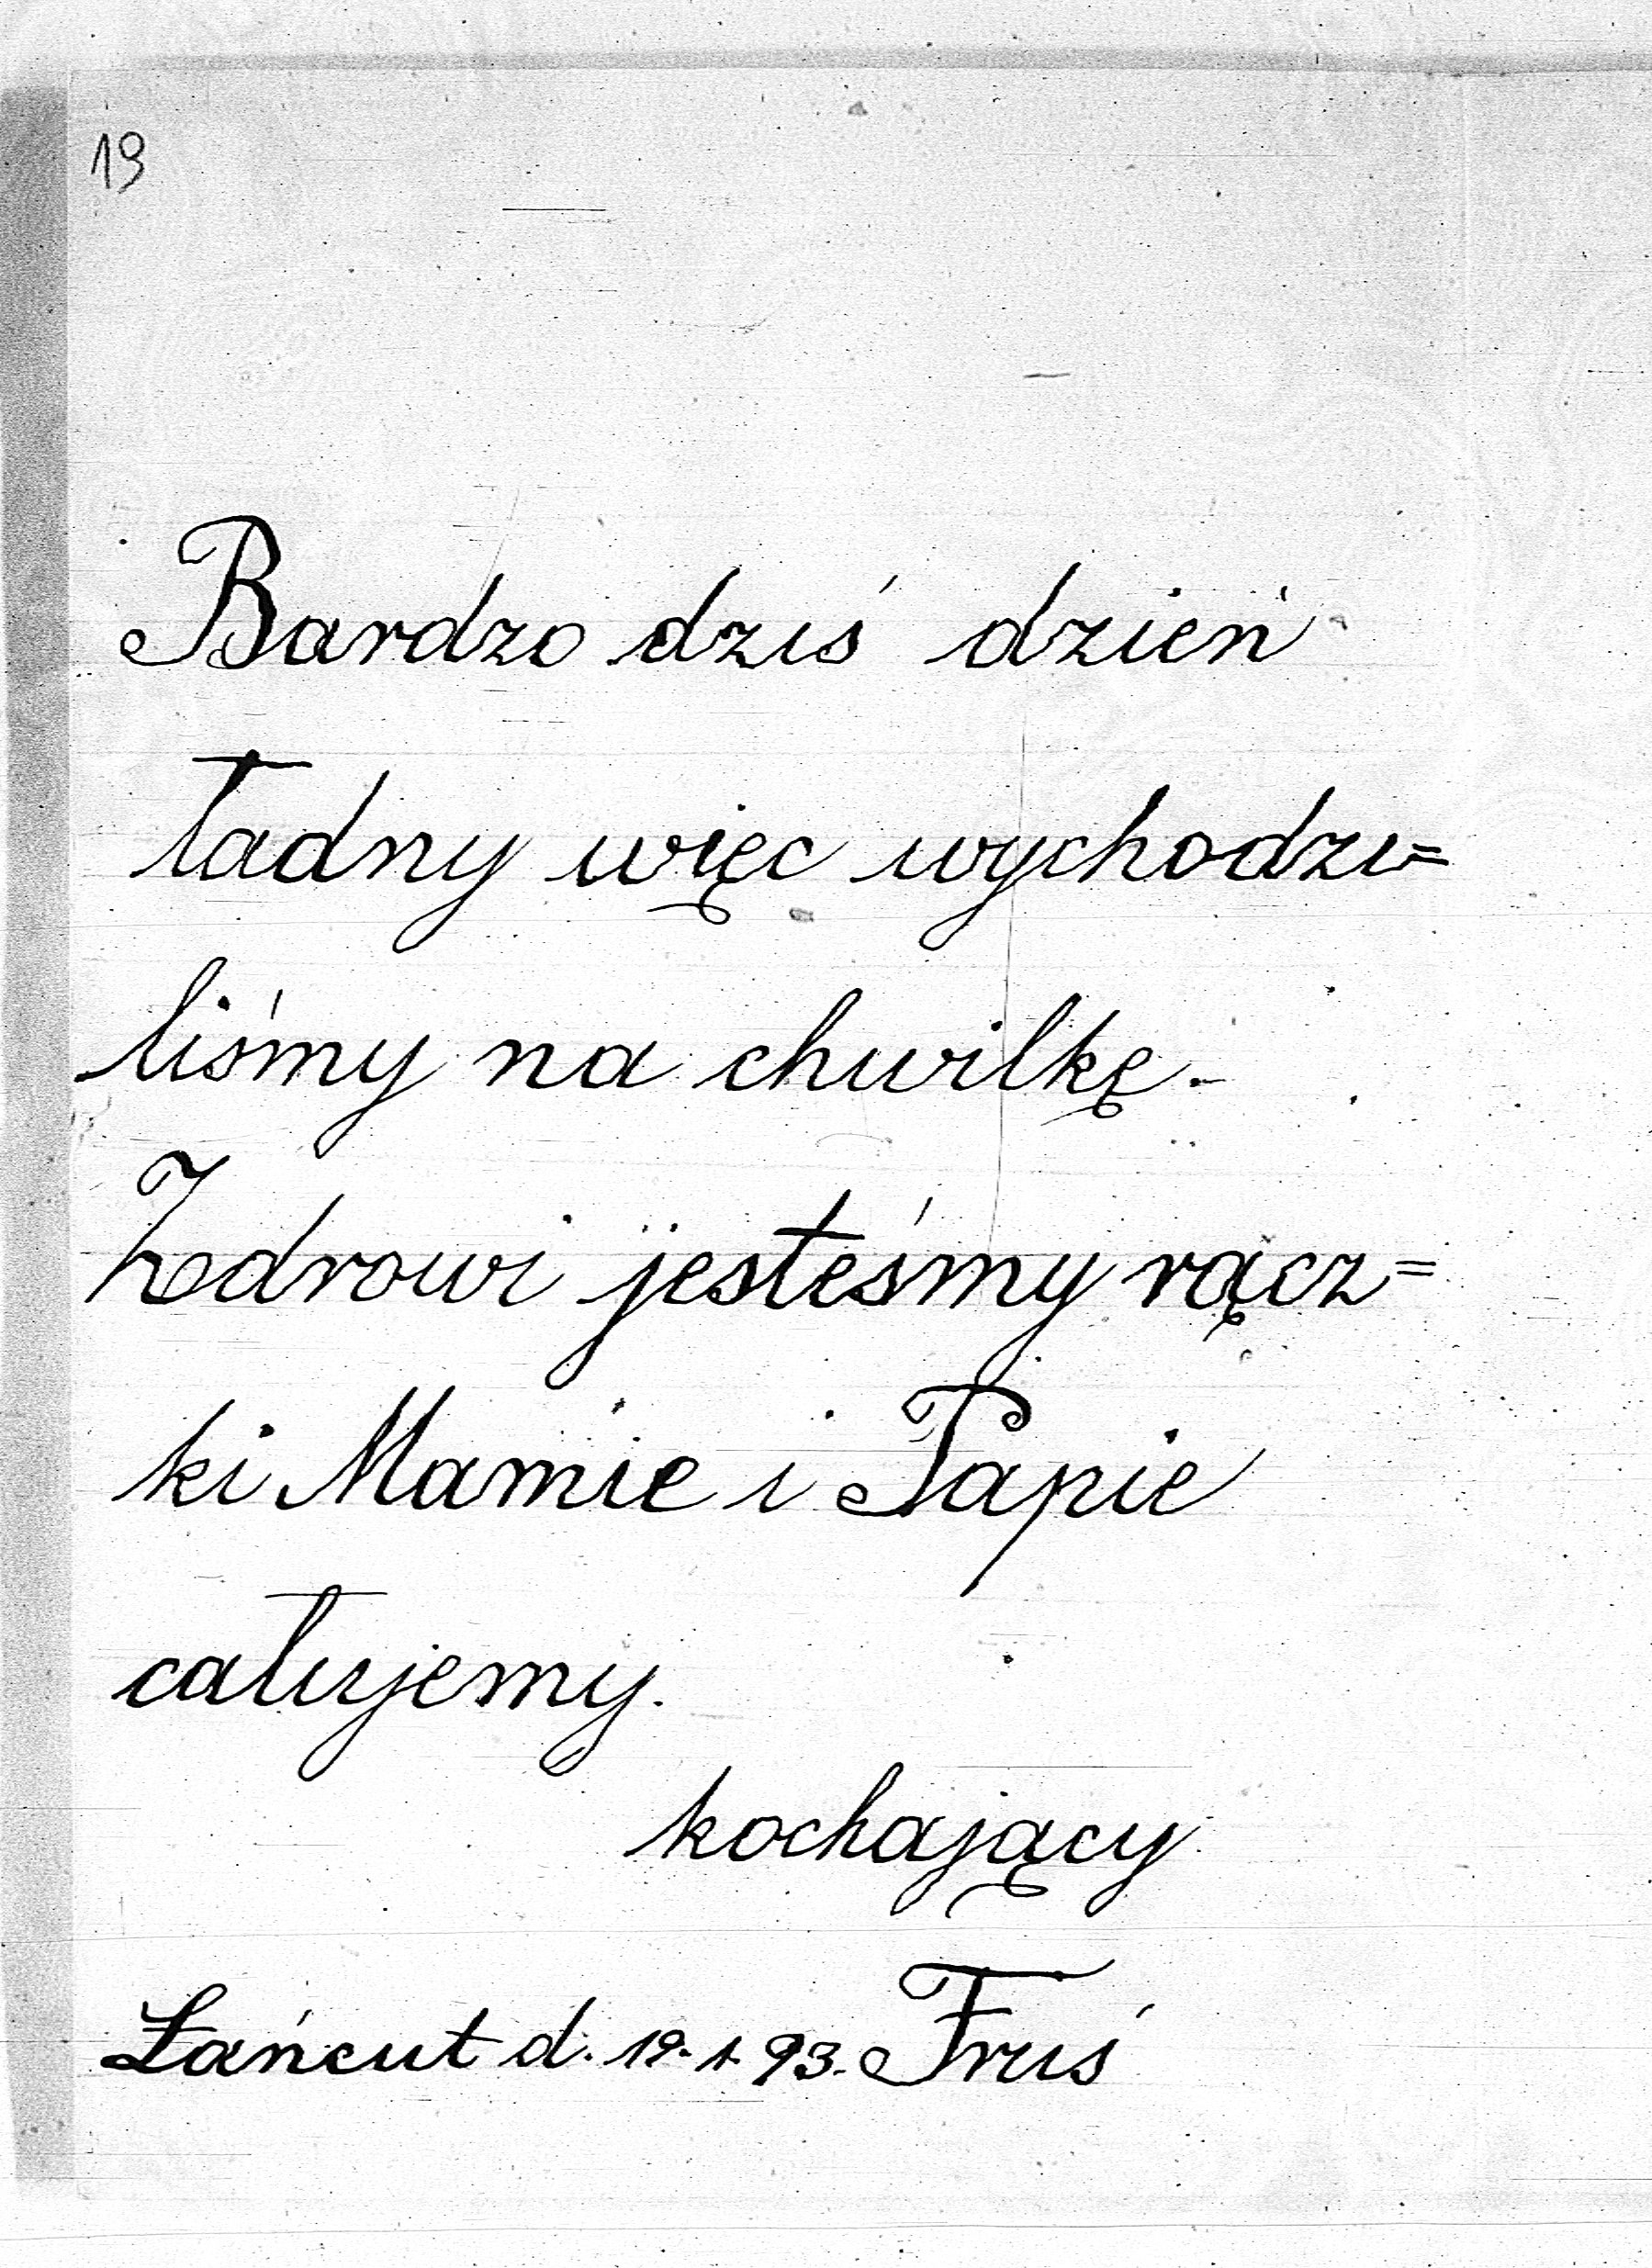 19
Bardzo dziś dzień
ładny więc wychodzi=
liśmy na chwilkę.
Zdrowi jesteśmy rącz=
ki Mamie i Papie
całujemy.
kochający
Łańcut d. 19. 1. 93. Fruś